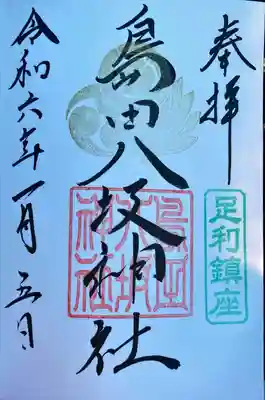 奉拝
足利鎮座
島田八坂神社
島田八坂神社
令和六年一月五日